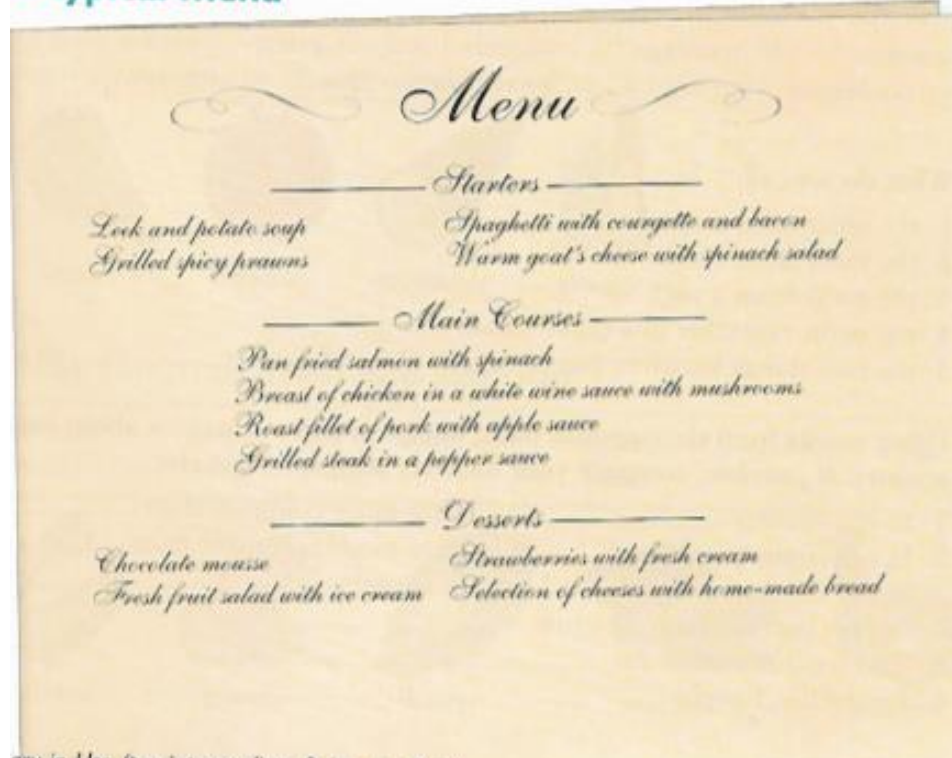 Menu
Starters
Leek and potato soup
Grilled spicy prawns
Spaghetti with courgette and bacon
Warm goat's cheese with spinach salad
Main Courses
Pan fried salmon with spinach
Breast of chicken in a white wine sauce with mushrooms
Roast fillet of pork with apple sauce
Grilled steak in a pepper sauce
Desserts
Chocolate mousse
Fresh fruit salad with ice cream
Strawberries with fresh cream
Selection of cheeses with home-made bread